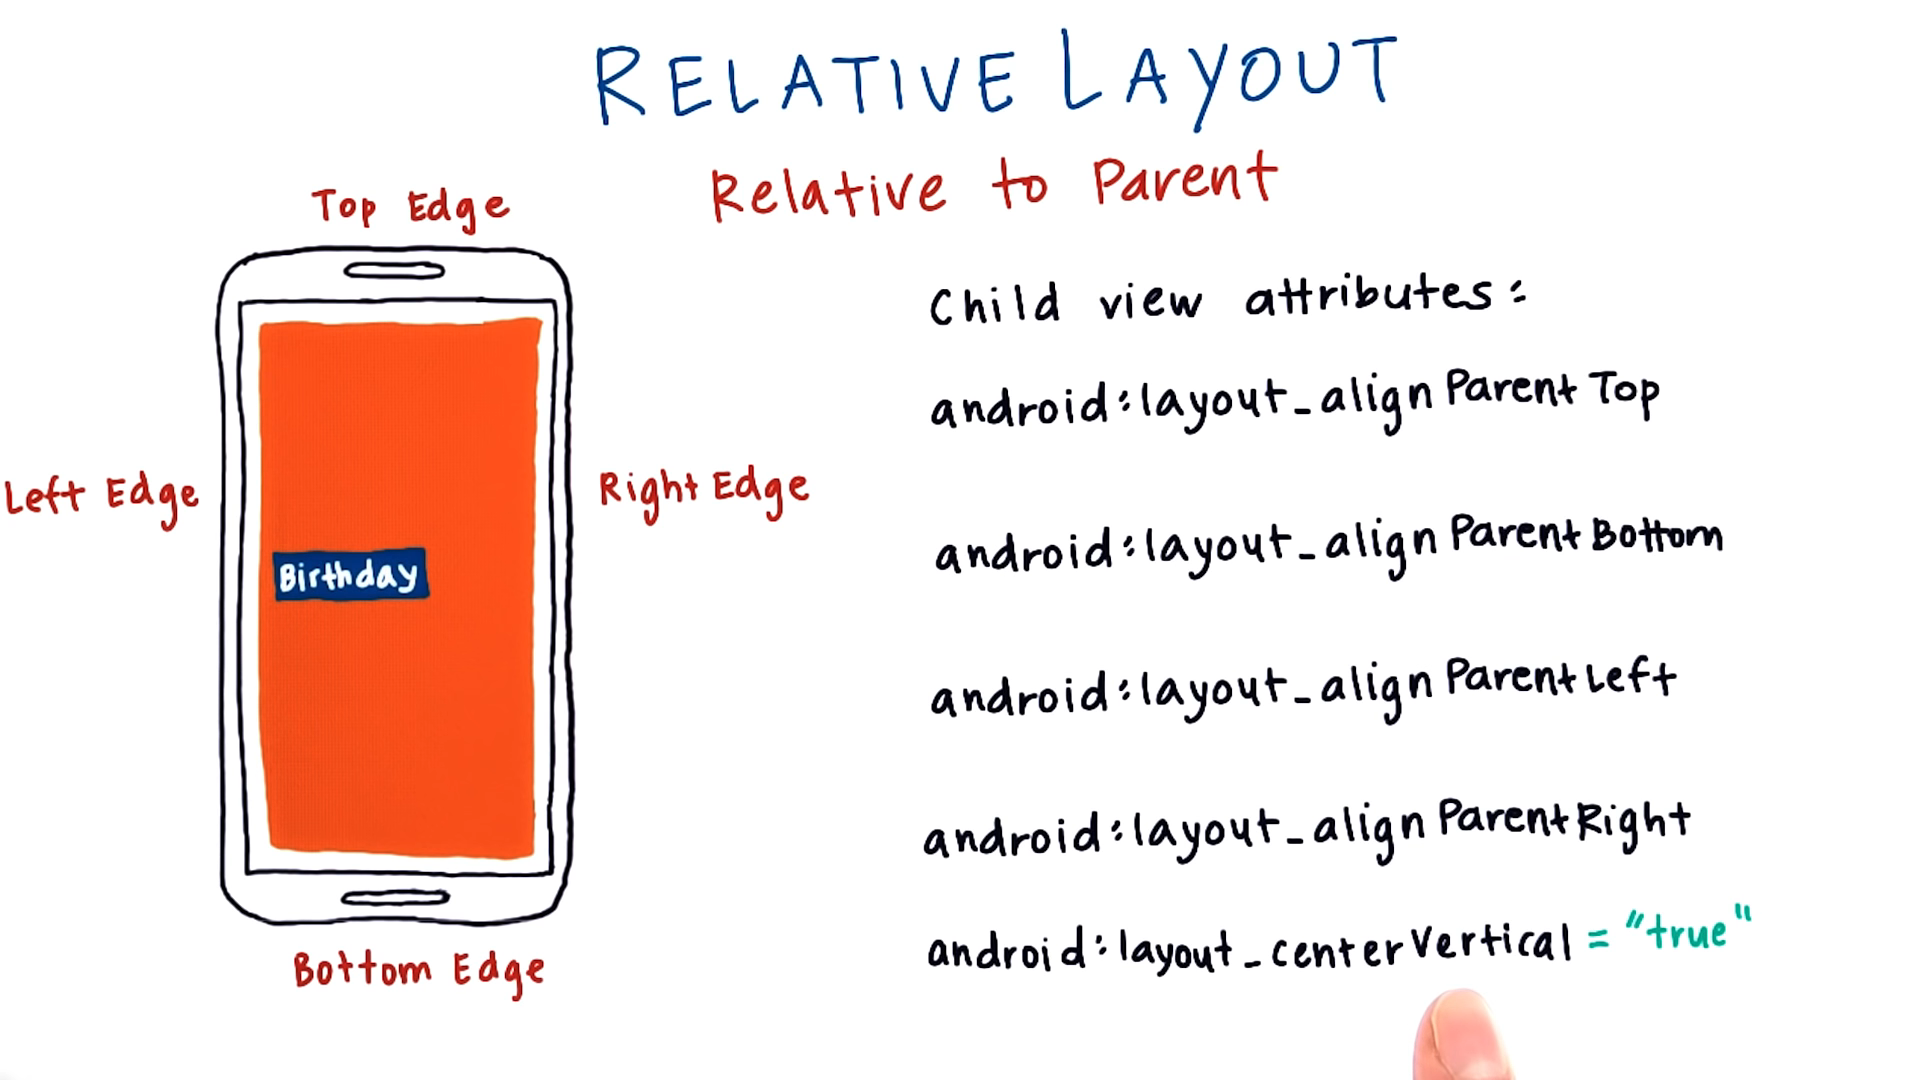 RELATIVE LAYOUT
Relative to Parent
Top Edge
Left Edge
Right Edge
Birthday
Bottom Edge
Child view attributes:
android:layout_alignParentTop
android:layout_alignParentBottom
android:layout_alignParentLeft
android:layout_alignParentRight
android:layout_centerVertical = "true"